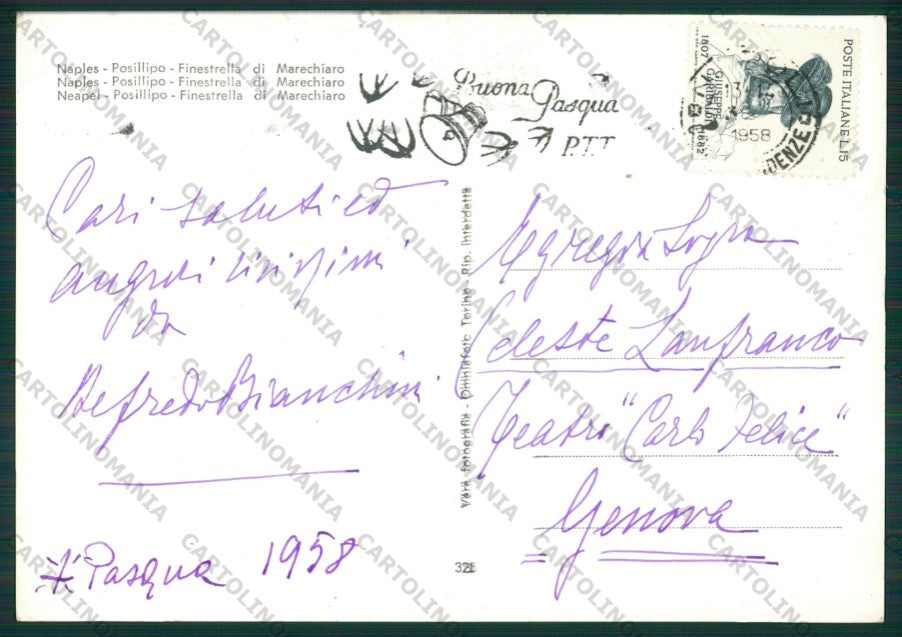 Naples - Posillipo - Finestrella di Marechiaro
Naples - Posillipo - Finestrella di Marechiaro
Neapel - Posillipo - Finestrella di Marechiaro
Buona
Pasqua
P.T.T
POSTE ITALIANE L.15
1807 GIUSEPPE GARIBALDI 1882
13
1958
Cari saluti ed
auguri vivissimi
da
Alfredo Bianchini
Pasqua 1958
Vera fotografia - Omniafoto Torino - Rip. interdetta
328
Egregia Sig.ra
Celeste Lanfranco
Teatro "Carlo Felice"
Genova
CARTOLINOMANIA